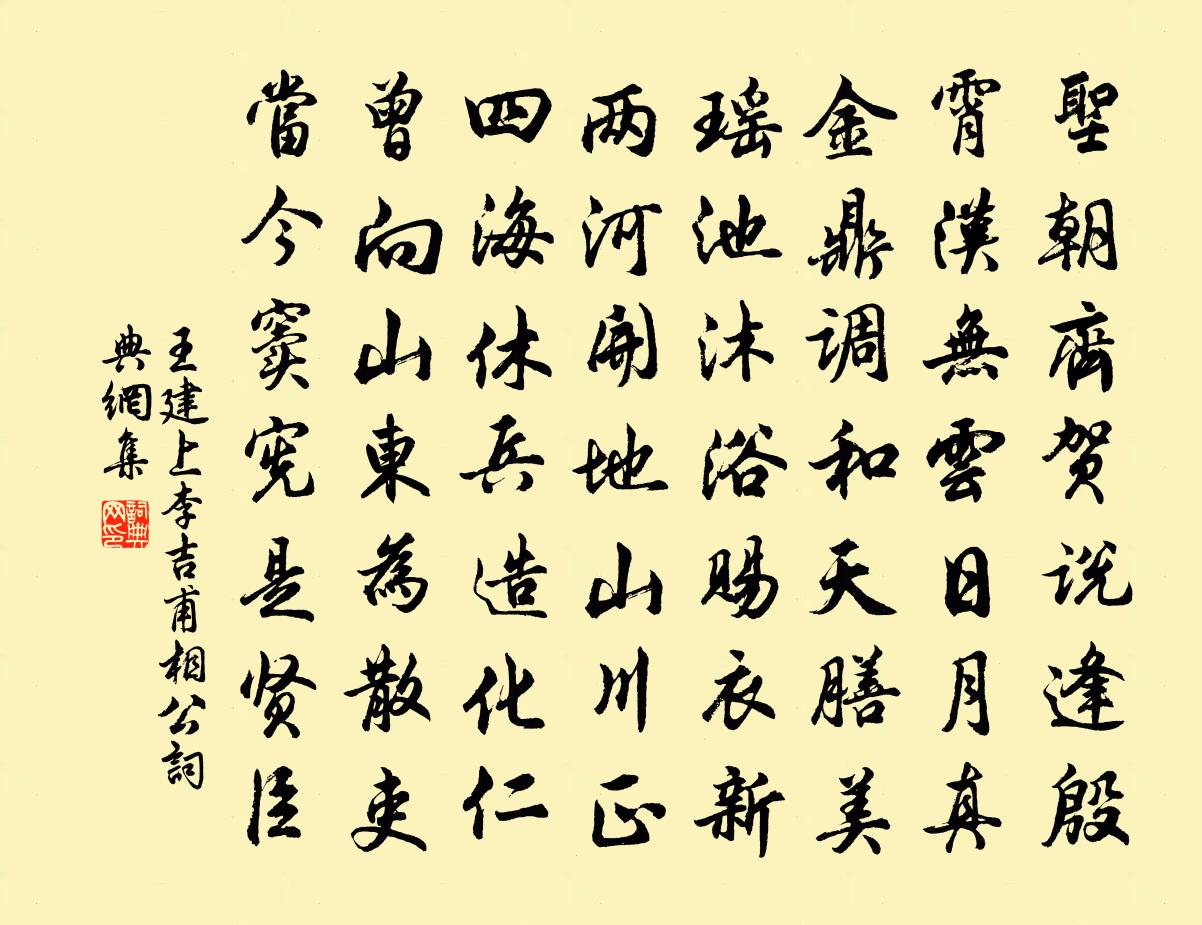 聖朝齊贺说逢殷
霄漢無雲日月真
金鼎调和天膳美
瑶池沐浴賜衣新
两河開地山川正
四海休兵造化仁
曾向山東為散吏
當今窦宪是贤臣
王建上李吉甫相公詞
典網集
詞典网印